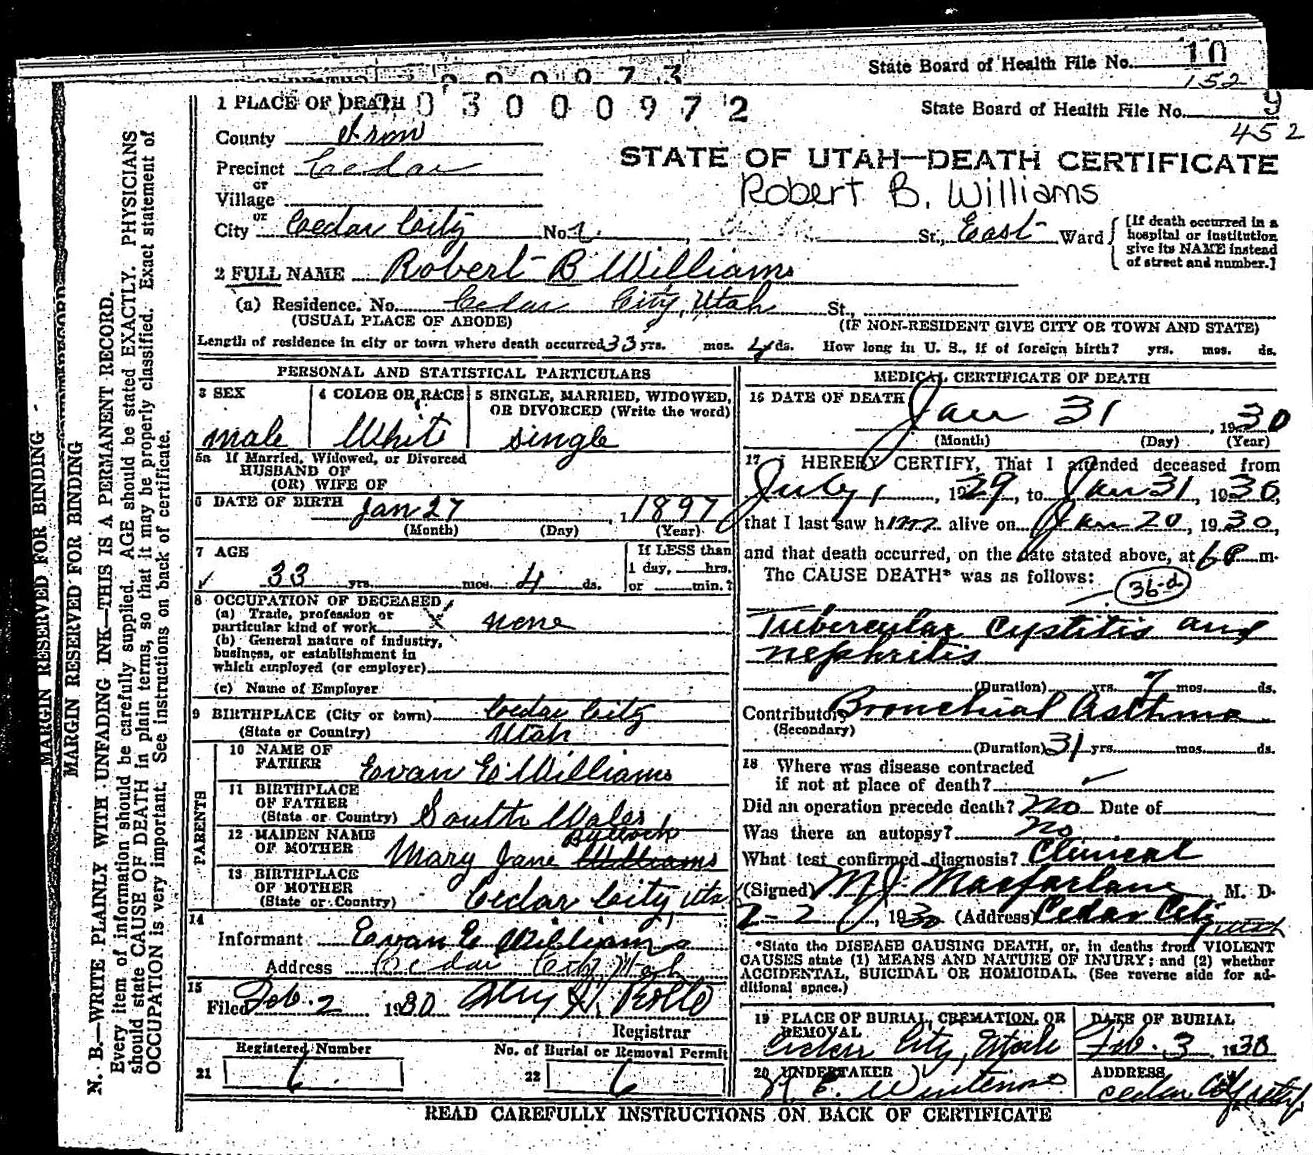 State Board of Health File No. 10
152
1 PLACE OF DEATH 0 3 0 0 0 9 7 2
State Board of Health File No. 9
452
County Iron
STATE OF UTAH—DEATH CERTIFICATE
Precinct Cedar
or
Robert B. Williams
Village
or
City Cedar City No. St., East Ward
[If death occurred in a hospital or institution give its NAME instead of street and number.]
2 FULL NAME Robert B Williams
(a) Residence. No. Cedar City, Utah St.,
(USUAL PLACE OF ABODE) (IF NON-RESIDENT GIVE CITY OR TOWN AND STATE)
Length of residence in city or town where death occurred 33 yrs. mos. 4 ds. How long in U. S., if of foreign birth? yrs. mos. ds.
PERSONAL AND STATISTICAL PARTICULARS
3 SEX
male
4 COLOR OR RACE
White
5 SINGLE, MARRIED, WIDOWED, OR DIVORCED (Write the word)
single
5a If Married, Widowed, or Divorced
HUSBAND OF
(OR) WIFE OF
6 DATE OF BIRTH Jan 27, 1897
(Month) (Day) (Year)
7 AGE
33 yrs. mos. 4 ds.
If LESS than
1 day, hrs.
or min.?
8 OCCUPATION OF DECEASED
(a) Trade, profession or
particular kind of work none
(b) General nature of industry,
business, or establishment in
which employed (or employer)
(c) Name of Employer
9 BIRTHPLACE (City or town) Cedar City
(State or Country) Utah
PARENTS
10 NAME OF
FATHER Evan E Williams
11 BIRTHPLACE
OF FATHER
(State or Country) South Wales
12 MAIDEN NAME
OF MOTHER Mary Jane Williams
13 BIRTHPLACE
OF MOTHER
(State or Country) Cedar City, Uta
14
Informant Evan E Williams
Address Cedar City Utah
15
Filed Feb. 2 1930
Registrar
Registered Number
21 6
No. of Burial or Removal Permit
22 6
MEDICAL CERTIFICATE OF DEATH
16 DATE OF DEATH Jan 31, 1930
(Month) (Day) (Year)
17 I HEREBY CERTIFY, That I attended deceased from
July 1, 1929, to Jan 31, 1930,
that I last saw him alive on Jan 20, 1930,
and that death occurred, on the date stated above, at 6 P m.
The CAUSE DEATH* was as follows:
36-d
Tubercular Cystitis and
nephritis
(Duration) yrs. 7 mos. ds.
Contributory Bronchial Asthma
(Secondary)
(Duration) 31 yrs. mos. ds.
18 Where was disease contracted
if not at place of death?
Did an operation precede death? No Date of
Was there an autopsy? no
What test confirmed diagnosis? Clinical
(Signed) M J Macfarlane, M. D.
2-2, 1930 (Address) Cedar City
Utah
*State the DISEASE CAUSING DEATH, or, in deaths from VIOLENT
CAUSES state (1) MEANS AND NATURE OF INJURY; and (2) whether
ACCIDENTAL, SUICIDAL OR HOMICIDAL. (See reverse side for additional space.)
19 PLACE OF BURIAL, CREMATION, OR REMOVAL
Cedar City, Utah
DATE OF BURIAL
Feb. 3, 1930
20 UNDERTAKER
ADDRESS
Cedar City Utah
READ CAREFULLY INSTRUCTIONS ON BACK OF CERTIFICATE
MARGIN RESERVED FOR BINDING
MARGIN RESERVED FOR BINDING
N. B.—WRITE PLAINLY WITH UNFADING INK—THIS IS A PERMANENT RECORD.
Every item of information should be carefully supplied. AGE should be stated EXACTLY. PHYSICIANS
should state CAUSE OF DEATH in plain terms, so that it may be properly classified. Exact statement of
OCCUPATION is very important. See instructions on back of certificate.